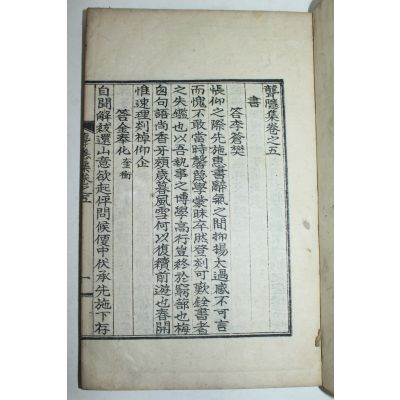 聾隱集卷之五
書
答李蒼樊
悵仰之際先施惠書辭氣之間抑揚太過感不可言
而愧不敢當時馨晉學業昧卒然登刻可歎銓書者
之失鑑也以吾執事之博學高行豈終於窮部也梅
囪句語尚香牙頰歲暮風雪何以復續前遊也春開
惟速理剡棹仰企
答金奉化奎衡
自聞解紱還山意欲起伻問候便中伏承先施下存
聾隱集卷之五
一